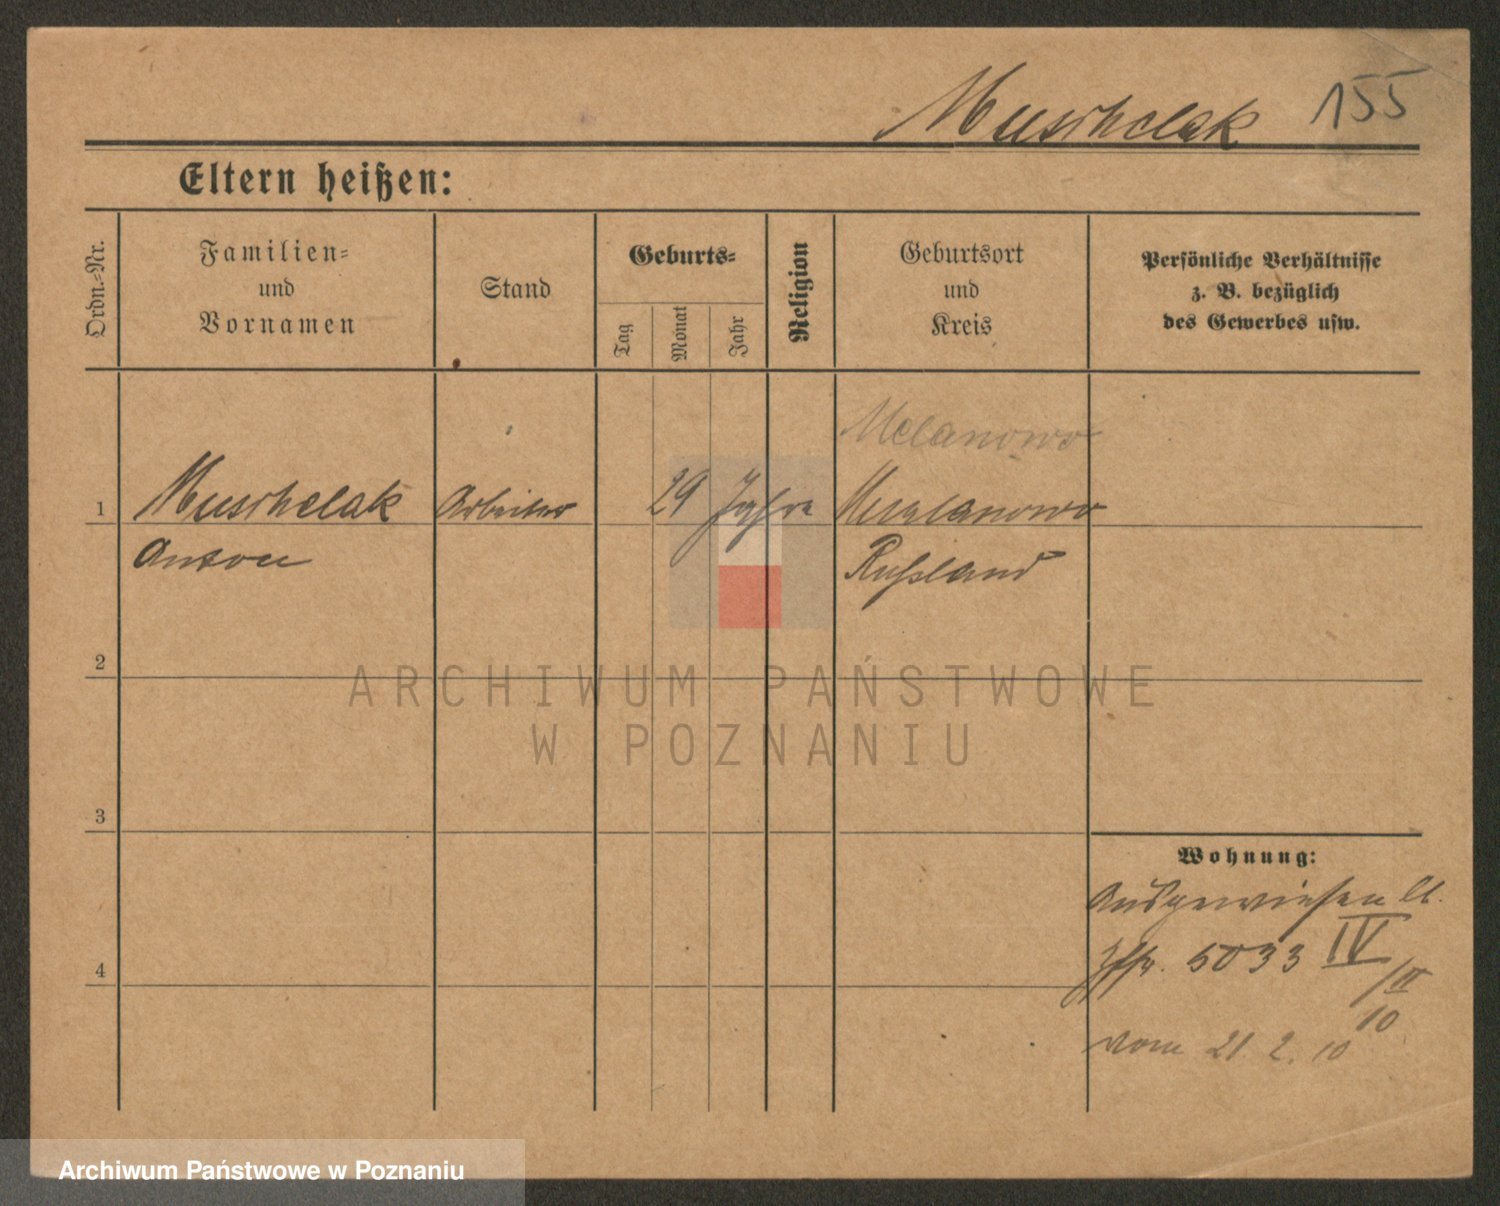 Muschelak 155
Eltern heißen:
Ordn.-Nr.
Familien-
und
Vornamen
Stand
Geburts-
Tag
Monat
Jahr
Religion
Geburtsort
und
Kreis
Persönliche Verhältnisse
z. B. bezüglich
des Gewerbes usw.
Melanowo
1 Muschelak Arbeiter 29 Jahre
Anton Rußland
2
3
4
Wohnung:
Ausgewiesen lt.
5033 IV
10
vom 21. 2. 10
ARCHIWUM PAŃSTWOWE
W POZNANIU
Archiwum Państwowe w Poznaniu